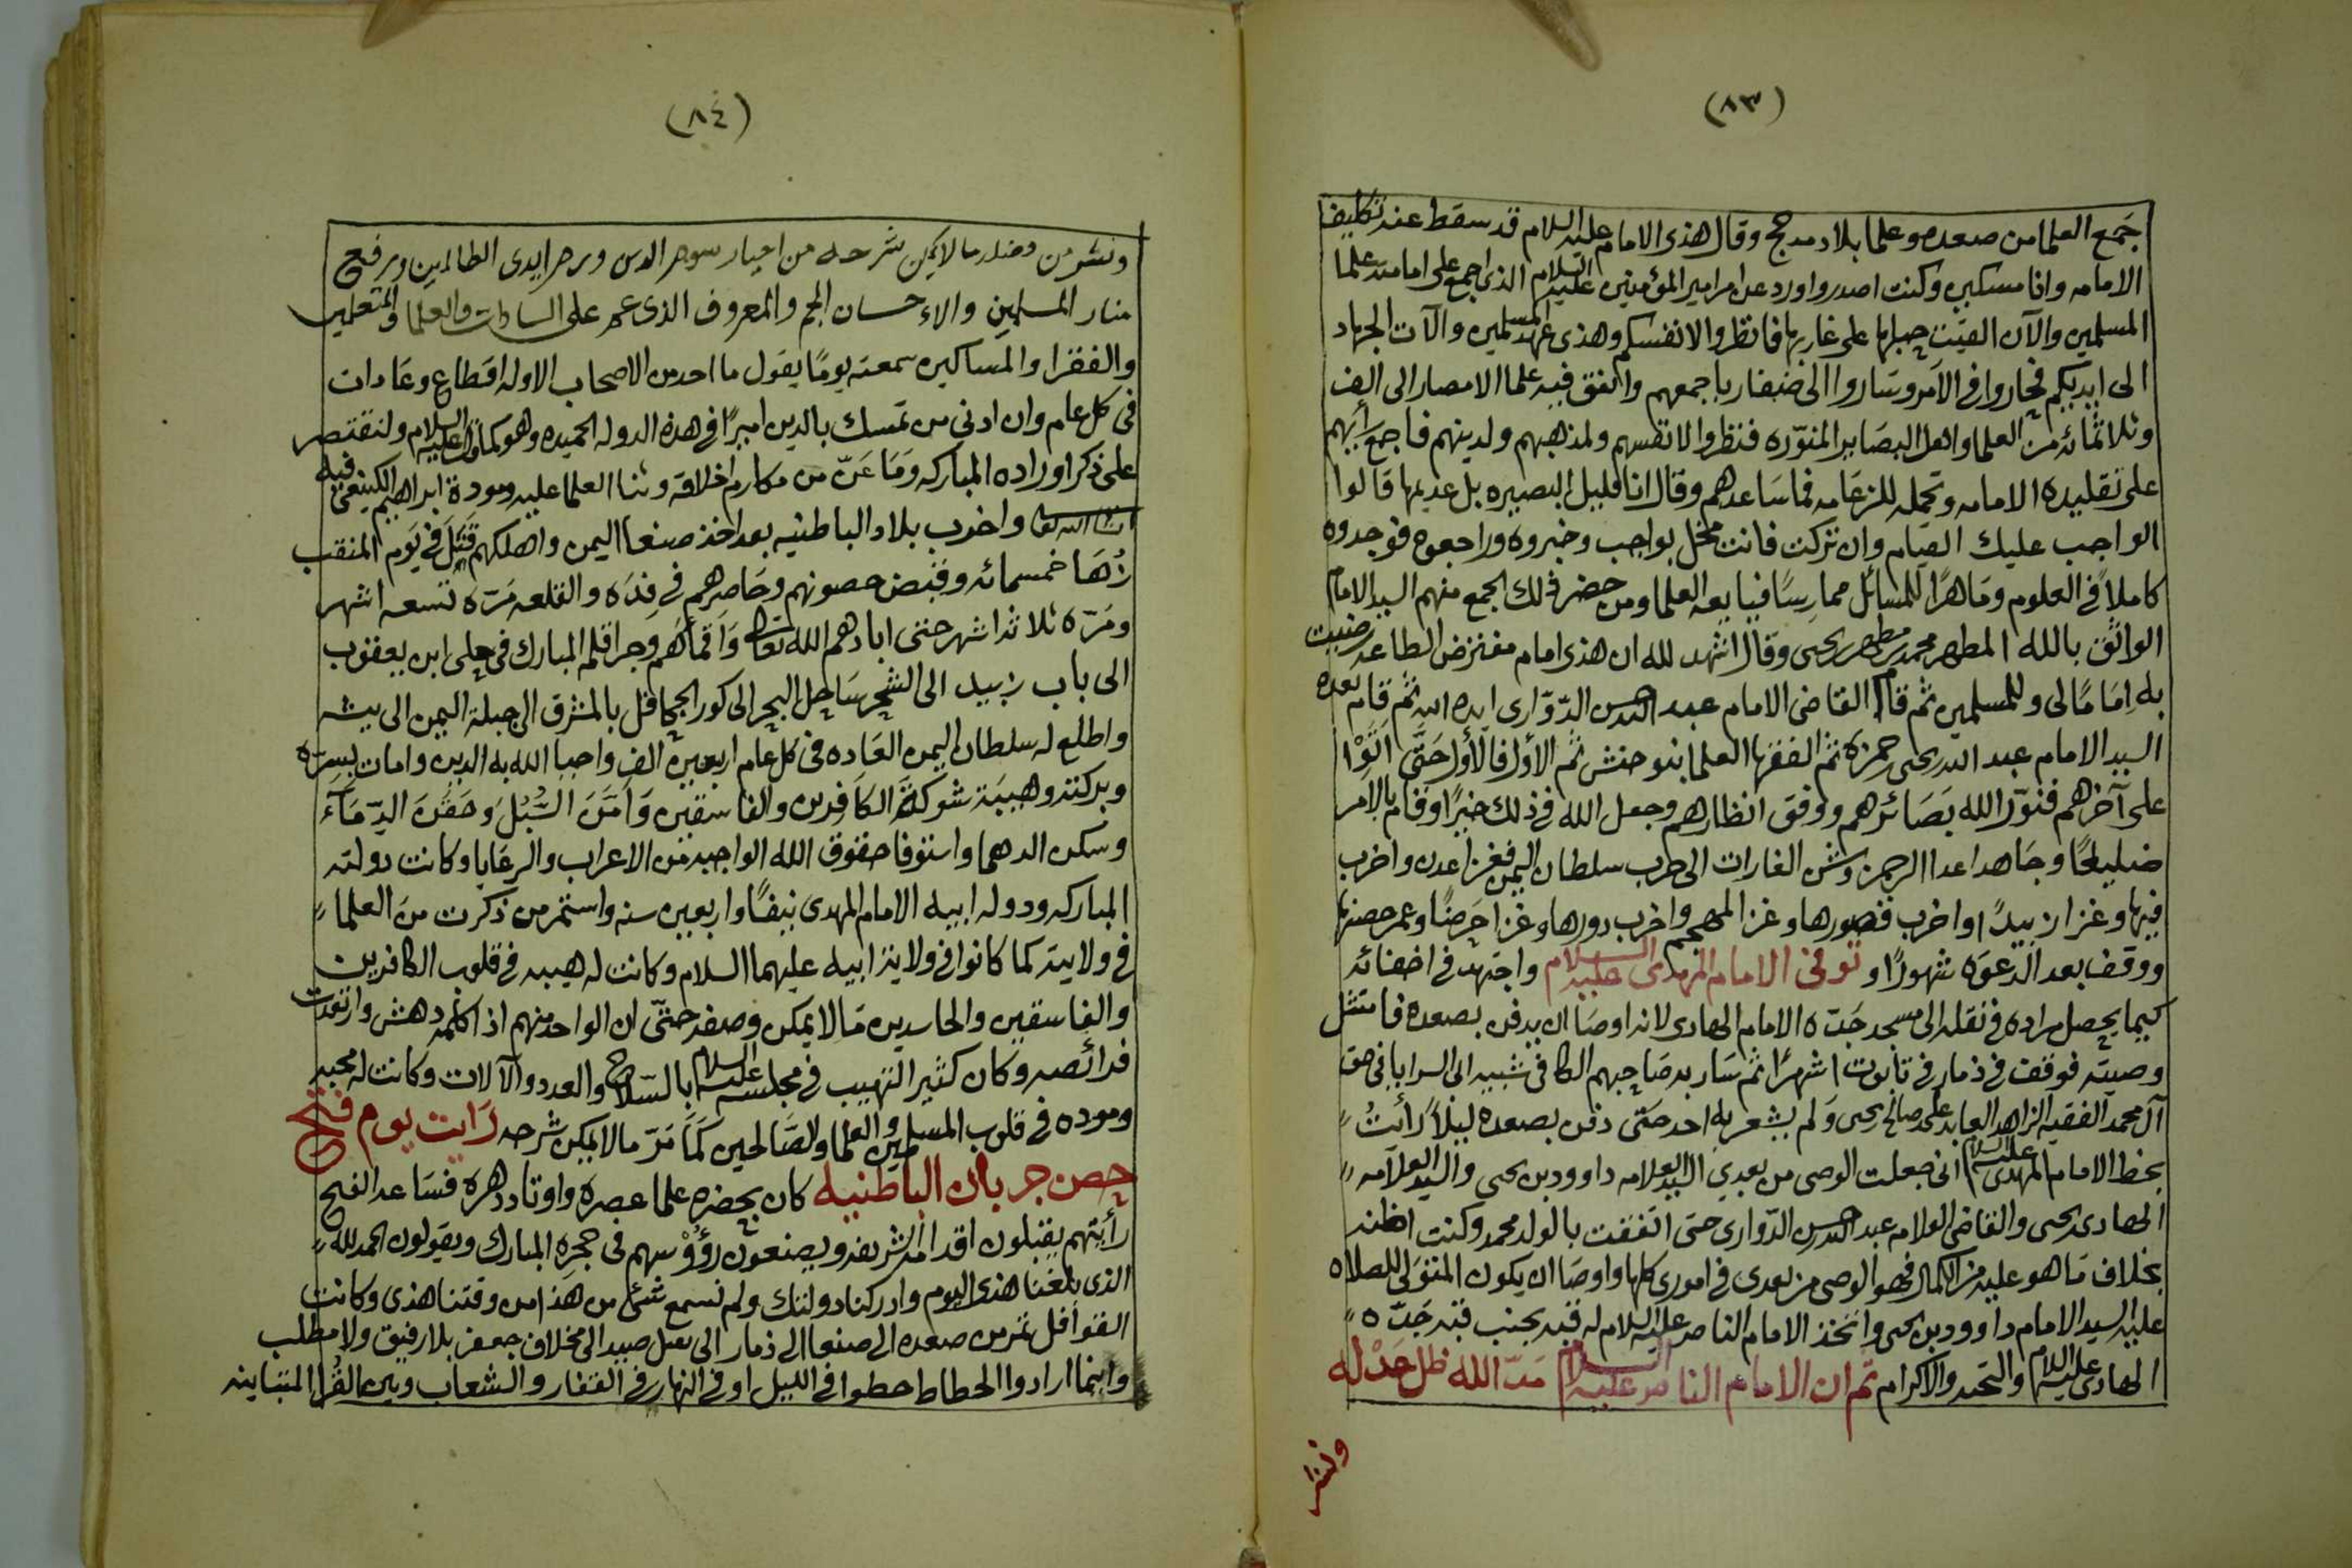 (٨٣)
جمع العلما من صعده وعلما بلاد مدحج وقال هذى الامام عليه السلام قد سقط عنه تكليف
الامامه وانا مسكين وكنت اصدر واورد عن امر امير المؤمنين عليه السلام الذى اجمع على امامته علما
المسلمين والآن القيت حبلها على غاربها فانظروا لانفسكم وهذى عهد المسلمين وآلات الجهاد
الى ايديكم فحاروا فى الأمر وساروا الى ضفار باجمعهم واتفق فيه علما الامصار الى الف
وثلاثمائه من العلما واهل البصاير المنوّره فنظروا لانفسهم ولمذهبهم ولدينهم فاجمع رأيهم
على تقليده الامامه وتحمله للزعامه فما ساعدهم وقال انا قليل البصيره بل عديمها قالوا
الواجب عليك القيام وان تركت فانت مخل بواجب وخبروه وراجعوه فوجدوه
كاملاً فى العلوم وماهرًا للمسائل ممارسًا فبايعه العلما ومن حضر ذلك الجمع منهم السيد الامام
الواثق بالله المطهر محمد بن مطهر بن يحيى وقال اشهد لله ان هذى امام مفترض الطاعه رضيت
به إمامًا لى وللمسلمين ثم قام القاضى الامام عبد الله بن الحسن الدّوّارى ايده الله ثم قام بعده
السيد الامام عبد الله بن يحيى حمزه ثم الفقها العلما بنو حنش ثم الأول فالأول حَتَّى اتَوْا
على آخرهم فنوّر الله بَصَائرهم ووفق انظارهم وجعل الله فى ذلك خيرًا وقام بالامر
ضليلحًا وجاهد اعدا الرحمن وشن الغارات الى حرب سلطان اليمن فغزا عدن واخرب
فيها وغزا زبيدًا واخرب قصورها وغز المهجم واخرب دورها وغزا حَرضًا وعمر حصنها
ووقف بعد الدعوه شهورًا وتوفى الامام المهدى عليه السلام واجتهد فى اخفائه
كيما يحصل مراده فى نقله الى مسجد جَدّه الامام الهادى لانه اوصا ان يدفن بصعده فامتثل
وصيته فوقف فى ذمار فى تابوت اشهرًا ثم سار به صاحبهم الكافى شبيه الى السرايا فى حق
آل محمد الفقيه الزاهد العابد على صالح بن يحيى ولم يشعر به احد حتى دفن بصعده ليلاً رأيتُ
بخط الامام المهدى عليه السلام انى جعلت الوصى من بعدي السيد العلامه داوود بن يحيى والسيد العلامه
الهادى بن يحيى والقاضى العلامه عبد الله بن الحسن الدّوارى حتى اتفقت بالولد محمد وكنت اظنه
بخلاف ما هو عليه من الكمال فهو الوصى من بعدى فى امورى كلها واوصا ان يكون المتولى للصلاه
عليه السيد الامام داوود بن يحيى واتخذ الامام الناصر عليه السلام له قبه بجنب قبه جَدّه
الهادى عليه السلام والتحيه والاكرام ثم ان الامام الناصر عليه السلام مَدّ الله ظل عَدْله
ونشر
(٨٤)
ونشر من فضله ما لا يمكن شرحه من احيا رسوم الدين وزجر ايدى الظالمين ورفع
منار المسلمين والاحسان الجم والمعروف الذى عم على السادات والعلما والمتعلمين
والفقرا والمساكين سمعته يومًا يقول ما احد من الاصحاب الا وله اقطاع وعادات
فى كل عام وان ادنى من تمسك بالدين اميرًا فى هذه الدوله الحميده وهو كما قال عليه السلام ولنقتصر
على ذكر اوراده المباركه وَمَا عَنّ من مكارم اخلاقه وثنا العلما عليه ومودة ابراهيم الكينعى فيه
ان شا الله تعا واخرب بلاد الباطنيه بعد اخذ صنعا اليمن واهلكهم قَتَلَ فى يَوم المنقب
زُهَا خمسمائه وقبض حصونهم وحاصرهم فى فِدَه والقلعه مَرّه تسعه اشهر
ومَرّه ثلاثه اشهر حتى ابادهم الله تعا وَاَقمَاهُم وجرا قلم المبارك فى حلى ابن يعقوب
الى باب زبيد الى الشحر ساحل البحر الى كور الجحافل بالمشرق الى جبلة اليمن الى بيشه
واطلع له سلطان اليمن العَاده فى كل عام اربعين الف واحيا الله به الدين وامات بسرّه
وبركته وهيبَته شوكَة الكافرين والفاسقين وَاَمَّنَ السُّبُلَ وَحَقَنَ الدِّمَآءَ
وسكن الدهما واستوفا حقوق الله الواجبه من الاعراب والرعايا وكانت دولته
المباركه ودوله ابيه الامام المهدى نيفًا واربعين سنه واستمر من ذكرت من العلما
فى ولايته كما كانوا فى ولاية ابيه عليهما السلام وكانت له هيبه فى قلوب الكافرين
والفاسقين والحاسدين مَا لا يمكن وصفه حتّى ان الواحد منهم اذا كلمه دهش وارتعدت
فرائصه وكان كثير التهيب فى مجلسه عليه السلام بالسّلاح والعدد والآلات وكانت له محبه
ومودّه فى قلوب المسلمين والعلما والصَالحين كما مَرّ ما لا يمكن شرحه رَايت يوم فتح
حصن جربان الباطنيه كان بحضره علما عصره واوتاد دهره فسَاعه الفتح
رأيتهم يقبلون اقدامه الشريفه ويضعون رؤوسهم فى حجره المبارك ويقولون الحمد لله
الذى بلغنا هذى اليوم وادركنا دولتك ولم نسمع شىء من هذا من وقتنا هذى وكانت
القوافل تمر من صعده الى صنعا الى ذمار الى صيد الى مخلاف جعفر بلا رفيق ولا مطلب
واينما ارادوا الحطاط حطوا فى الليل او فى النهار فى القفار والشعاب وبين القُرا المتباينه